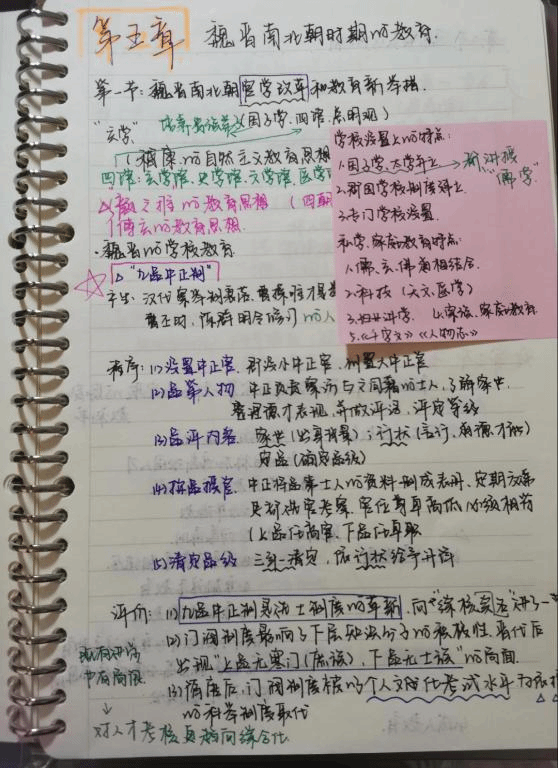 第五章 魏晋南北朝时期的教育
第一节:魏晋南北朝官学改革和教育新举措
"玄学" 培养贵族学 (国子学、四馆、总明观)
嵇康的自然主义教育思想
四馆:玄学馆、史学馆、文学馆、医学
△颜之推的教育思想 (四朝
傅玄的教育思想
·魏晋的学校教育
☆ △"九品中正制"
产生:汉代察举制衰落、曹操唯才是
曹丕时,陈群明令
学校设置上的特点:
1.国子学、太学并立
2.郡国学校制度建立
3.专门学校设置
新讲授"佛学"
私学、家庭的教育特点:
1.儒、玄、佛道相结合
2.科技(天文、医学)
3.妇女讲学 4.家族、家庭的教育
5.《千字文》《人物志》
程序:(1)设置中正官 郡设小中正官,州置大中正官
(2)品第人物 中正负责察访与之同籍的士人,了解家世、
道德才表现,并做评语,评定等级
(3)品评内容 家世(出身背景);行状(言行、道德才能)
定品(确定品级)
(4)按品授官 中正将品第士人的资料制成表册,定期交
吏部做官考察,官位尊卑高低必须相符
(上品任高官、下品任卑职)
(5)清定品级 三年一清定,依行状给予升降
评价:(1)九品中正制是选士制度的革新,向"综核名实"进了一
(2)门阀制度影响了下层知识分子的积极性,晋代后
出现"上品无寒门(庶族),下品无士族"的局面
(3)隋唐后,门阀制度被以个人文化考试水平为依
的科举制度取代
既有进步
中有局限
↓
对人才考核更趋向综合化